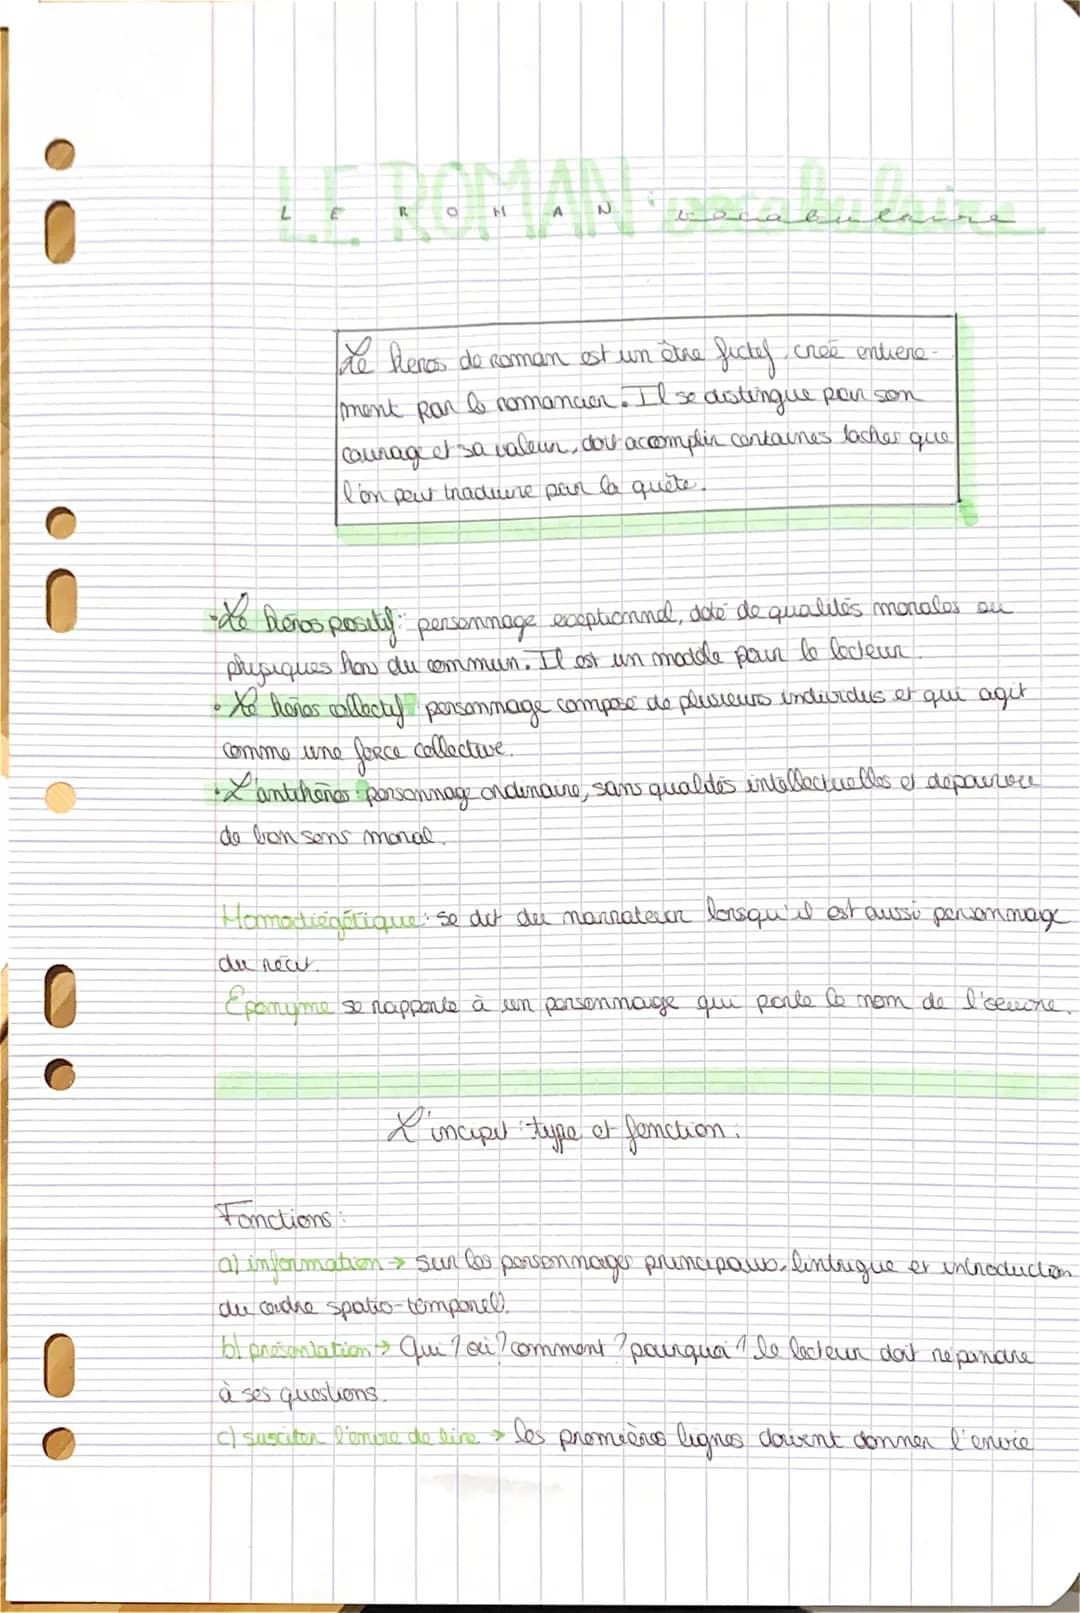 LE ROMAN : vocabulaire
Le heros de roman est un être fictif, créé entière-
ment par le romancier. Il se distingue par son
courage et sa valeur, doit accomplir certaines taches que
l'on peut traduire par la quête.
• Le héros positif : personnage exceptionnel, doté de qualités morales ou
physiques hors du commun. Il est un modèle pour le lecteur.
• Le héros collectif : personnage composé de plusieurs individus et qui agit
comme une force collective.
• L'antihéros : personnage ordinaire, sans qualités intellectuelles et dépourvu
de bon sens moral.
Homodiégétique : se dit du narrateur lorsqu'il est aussi personnage
du récit.
Éponyme se rapporte à un personnage qui porte le nom de l'œuvre.
L'incipit : type et fonction :
Fonctions :
a) information → sur les personnages principaux, l'intrigue et introduction
du cadre spatio-temporel.
b) présentation → Qui ? où ? comment ? pourquoi ? le lecteur doit répondre
à ses questions.
c) susciter l'envie de lire → les premières lignes doivent donner l'envie